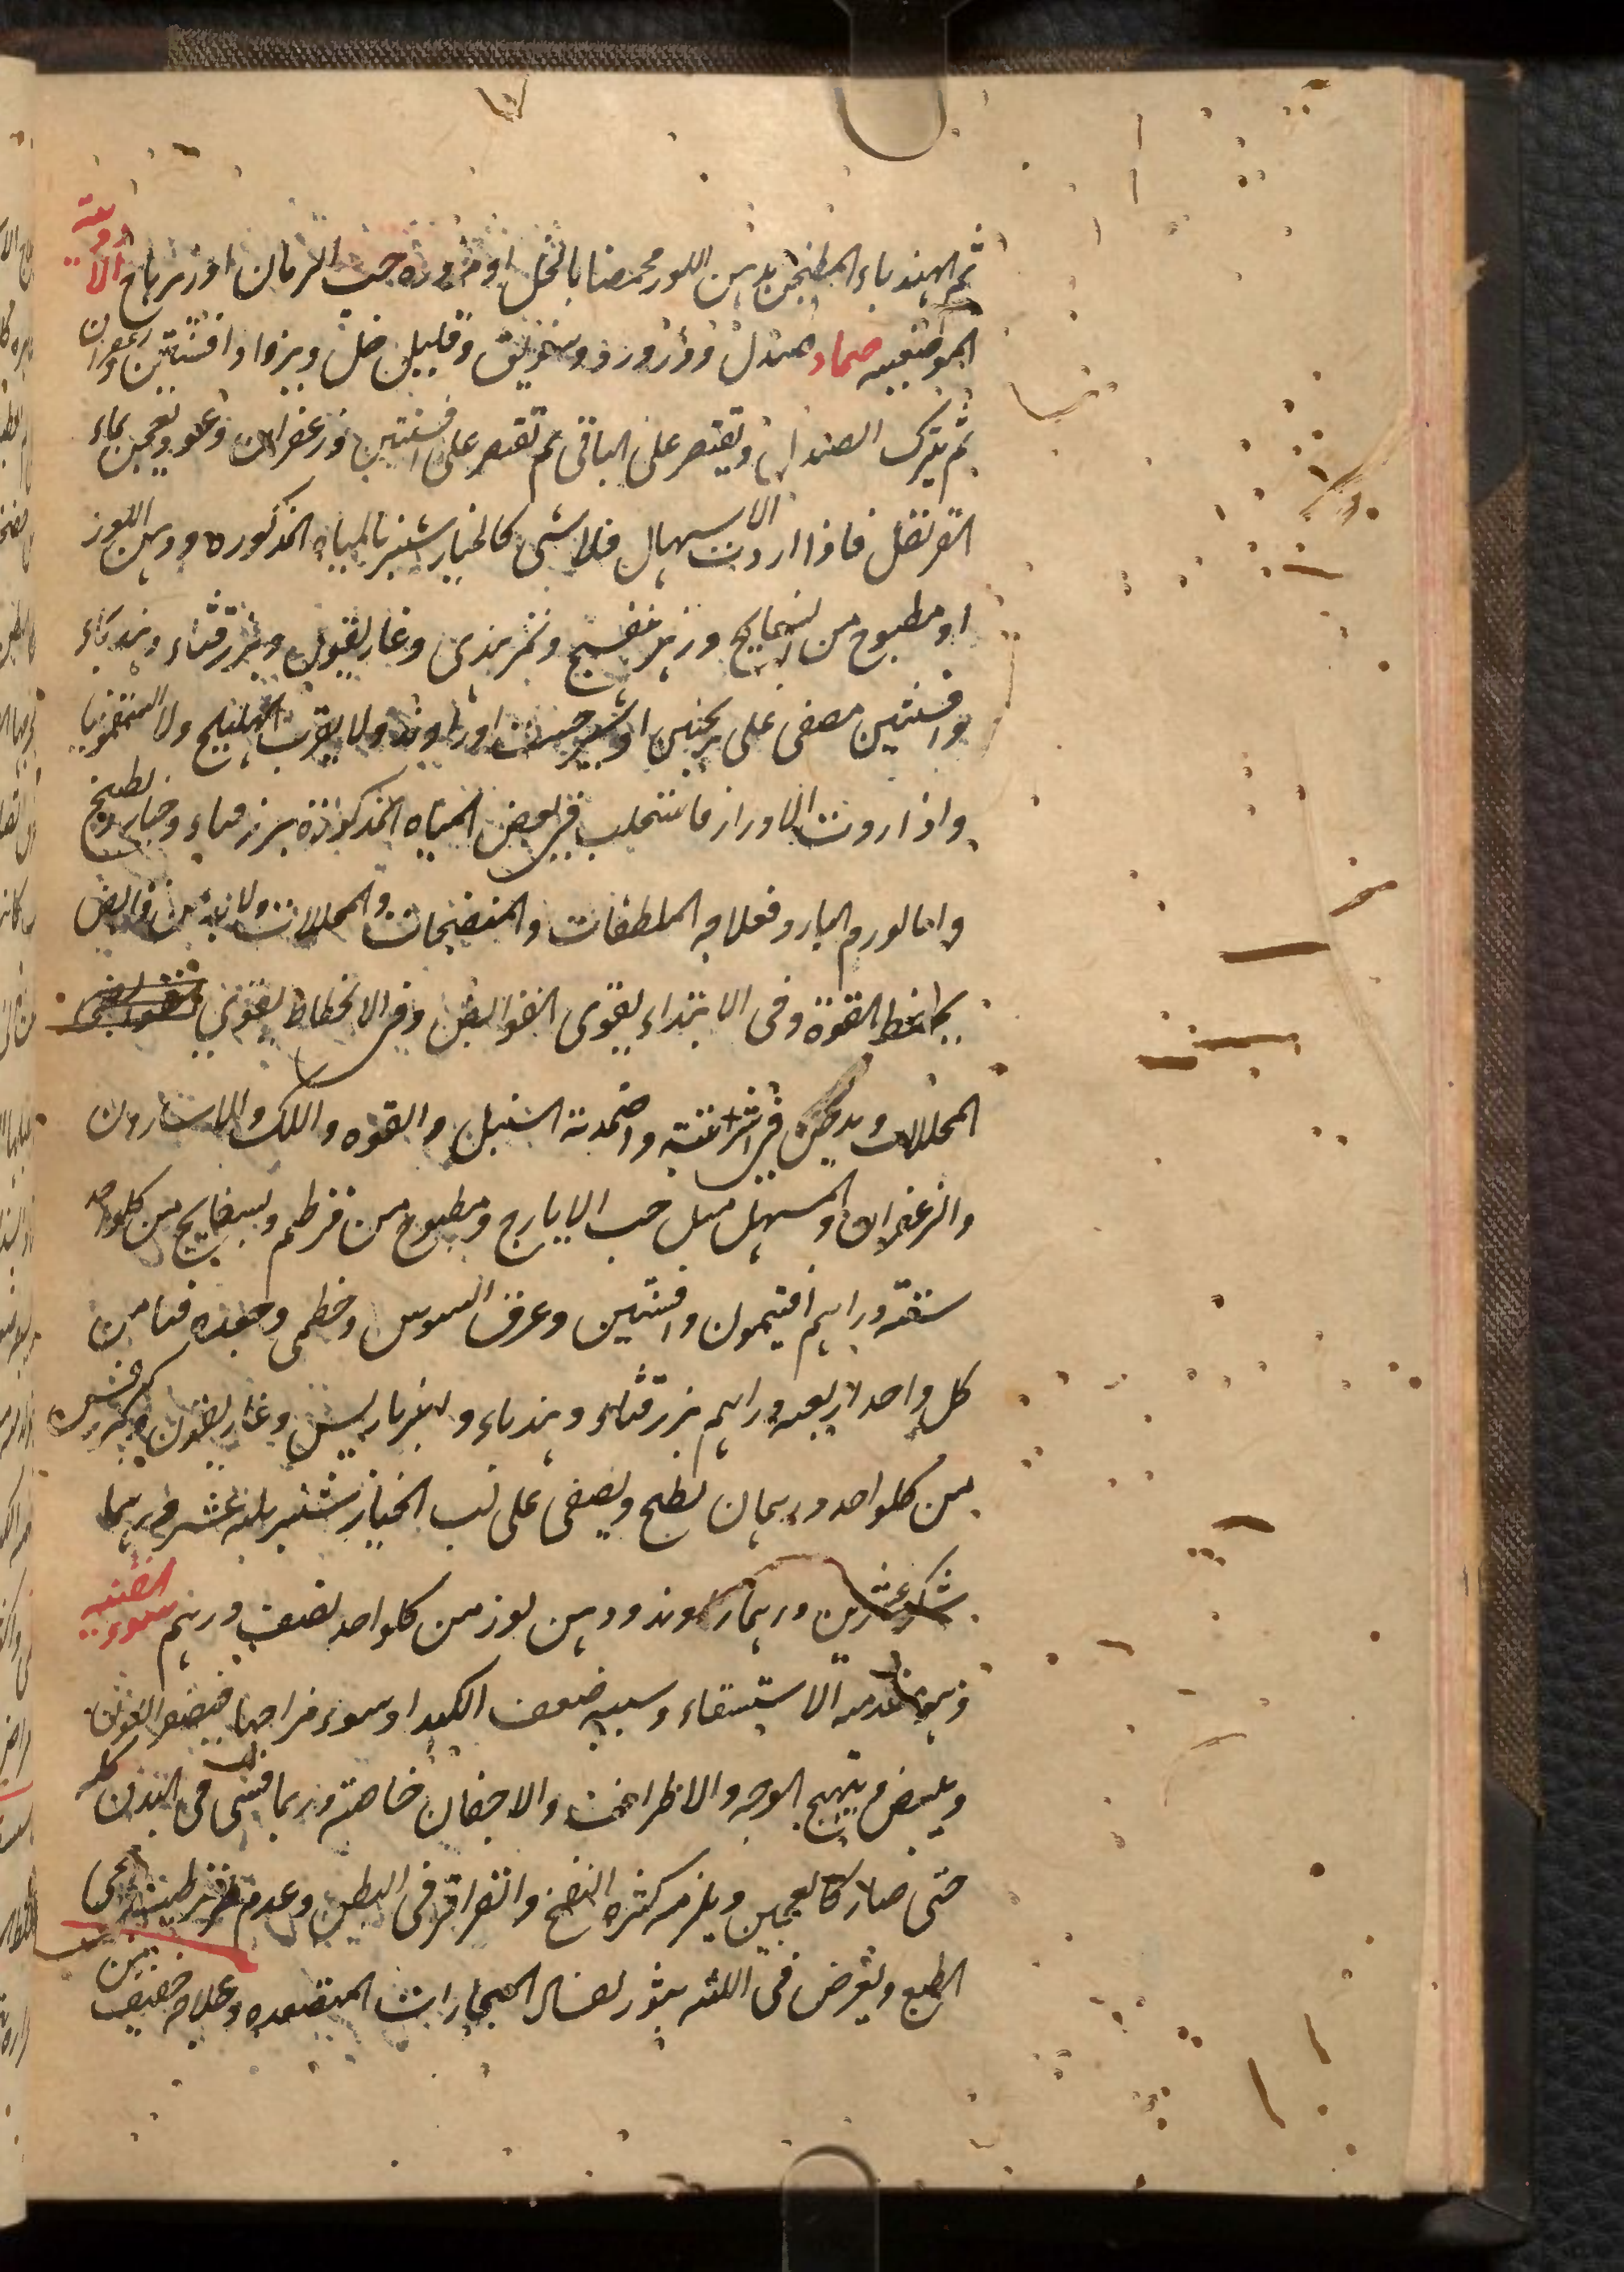 ثم الهندباء المطبخن بدهن اللوز محمضا بالخل او مزوره حب الرمان او زرباج الادوية
الموضعيه ضماد صندل وورد وسويق وقليل خل ويزاد افسنتين وزعفران
ثم يترك الصندل ويقتصر على الباقى ثم يقتصر على افسنتين وزعفران وعود ويعجن بماء
القرنفل فاذا اردت الاسهال فلا شى كالخيار شنبر بالمياه المذكوره ودهن اللوز
او مطبوخ من وزهر بنفسج وتمر هندى وغاريقون وبزر قثاء وهندباء
وافسنتين مصفى على ترنجبين او شيرخشت او راوند ولا يقرب الهليلج ولا السقمونيا
واذا اردت الادرار فاستحلب فى بعض المياه المذكورة بزر قثاء وخيار وبطيخ
واما الورم البارد فعلاجه الملطفات والمنضجات والمحللات ولا بد من قوابض
لحفظ القوة وفى الابتداء يقوى القوابض وفى الانحطاط يقوى
المحللات ويدخل فى اشربته واضمدته السنبل والفوه واللك والاسارون
والزعفران والمسهل مثل حب الايارج ومطبوخ من قرطم وبسفايج من كلواحد
ستة دراهم افتيمون وافسنتين وعرق السوس وخطمى وجعده من
كل واحد اربعه دراهم بزر قثاء وهندباء وانبرباريس وغاريقون وبزر كرفس
من كلواحد درهمان يطبخ ويصفى على لب الخيار شنبر ثلثه عشر درهما
سكر عشرين درهما راوند ودهن لوز من كلواحد نصف درهم سوء القنيه
وهو مقدمه الاستسقاء وسببه ضعف الكبد او سوء مزاجها فيصفر اللون
ويبيض ويتهيج الوجه والاطراف والاجفان خاصة وربما فشى فى البدن كله
حتى صار كالعجين ويلزمه كثره النفخ والقراقر فى البطن وعدم
الطبع ويعرض فى اللثه بثور لفساد البخارات المتصعده وعلاجه خفيف